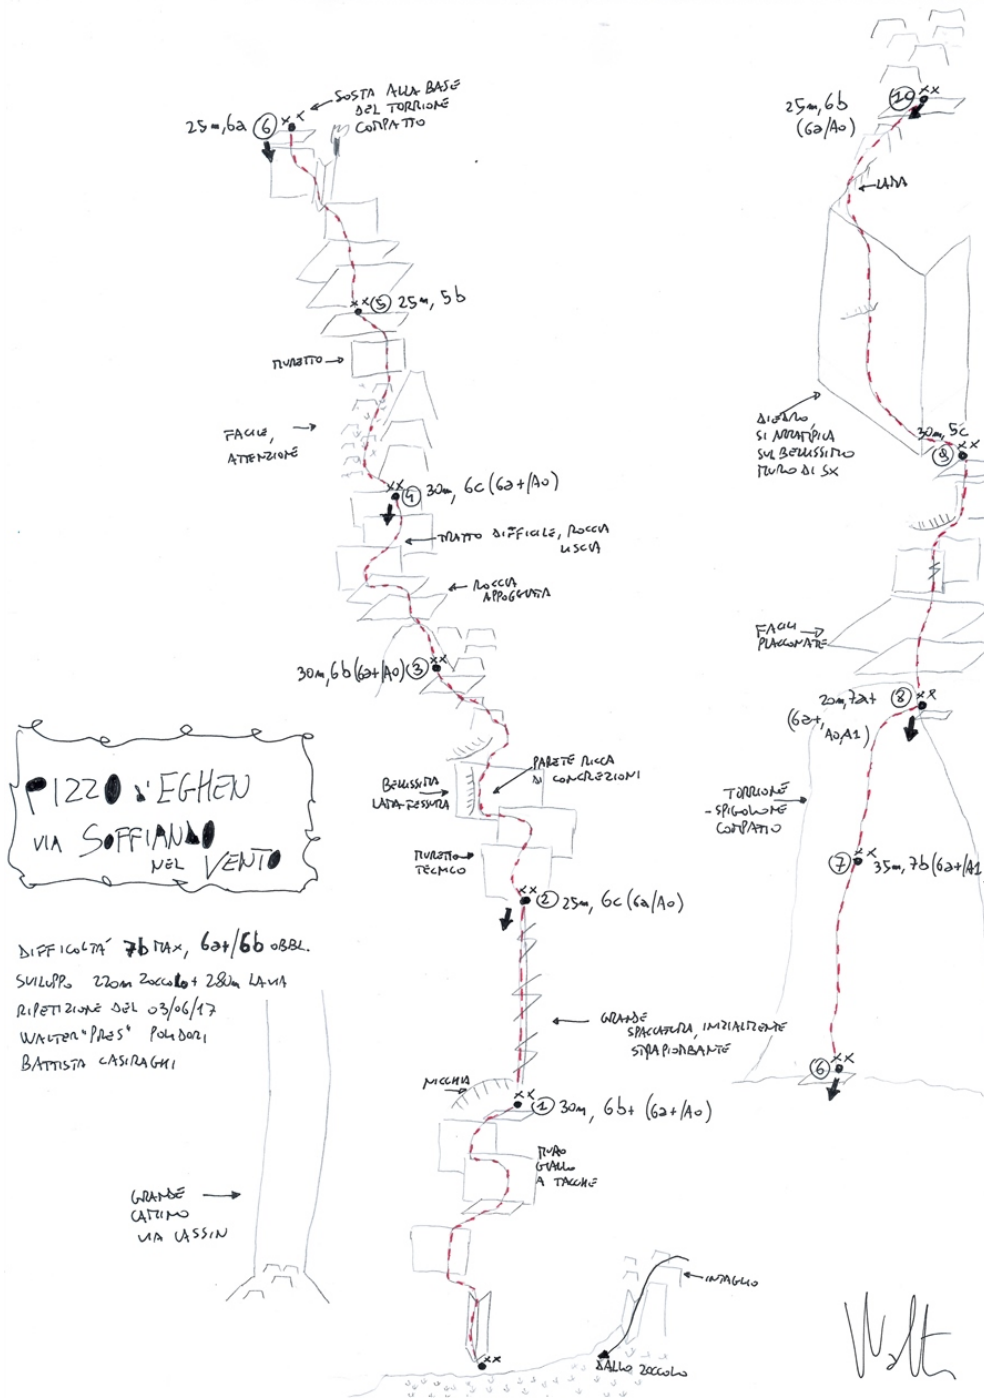 SOSTA ALLA BASE
DEL TORRIONE
COMPATTO
25m, 6a 6
5 25m, 5b
MURETTO
FACILE,
ATTENZIONE
4 30m, 6c (6a+/A0)
TRATTO DIFFICILE, ROCCIA
LISCIA
ROCCIA
APPOGGIATA
30m, 6b (6a+/A0) 3
PARETE RICCA
DI CONCREZIONI
BELLISSIMA
LAMA-FESSURA
MURETTO
TECNICO
2 25m, 6c (6a/A0)
GRANDE
SPACCATURA, INIZIALMENTE
STRAPIOMBANTE
NICCHIA
1 30m, 6b+ (6a+/A0)
MURO
GIALLO
A TACCHE
INTAGLIO
DALLO ZOCCOLO
PIZZO D'EGHEN
VIA SOFFIANDO
NEL VENTO
DIFFICOLTÀ 7b MAX, 6a+/6b OBBL.
SVILUPPO 220m ZOCCOLO + 280m LA VIA
RIPETIZIONE DEL 03/06/17
WALTER "PRES" POLIDORI
BATTISTA CASIRAGHI
GRANDE
CAMINO
VIA CASSIN
10
25m, 6b
(6a/A0)
LAMA
DIEDRO
SI ARRAMPICA
SUL BELLISSIMO
MURO DI SX
30m, 5c
9
FACILI
PLACCONATE
20m, 7a+ 8
(6a+,
A0,A1)
TORRIONE
-SPIGOLONE
COMPATTO
7 35m, 7b (6a+/A1
6
Walt